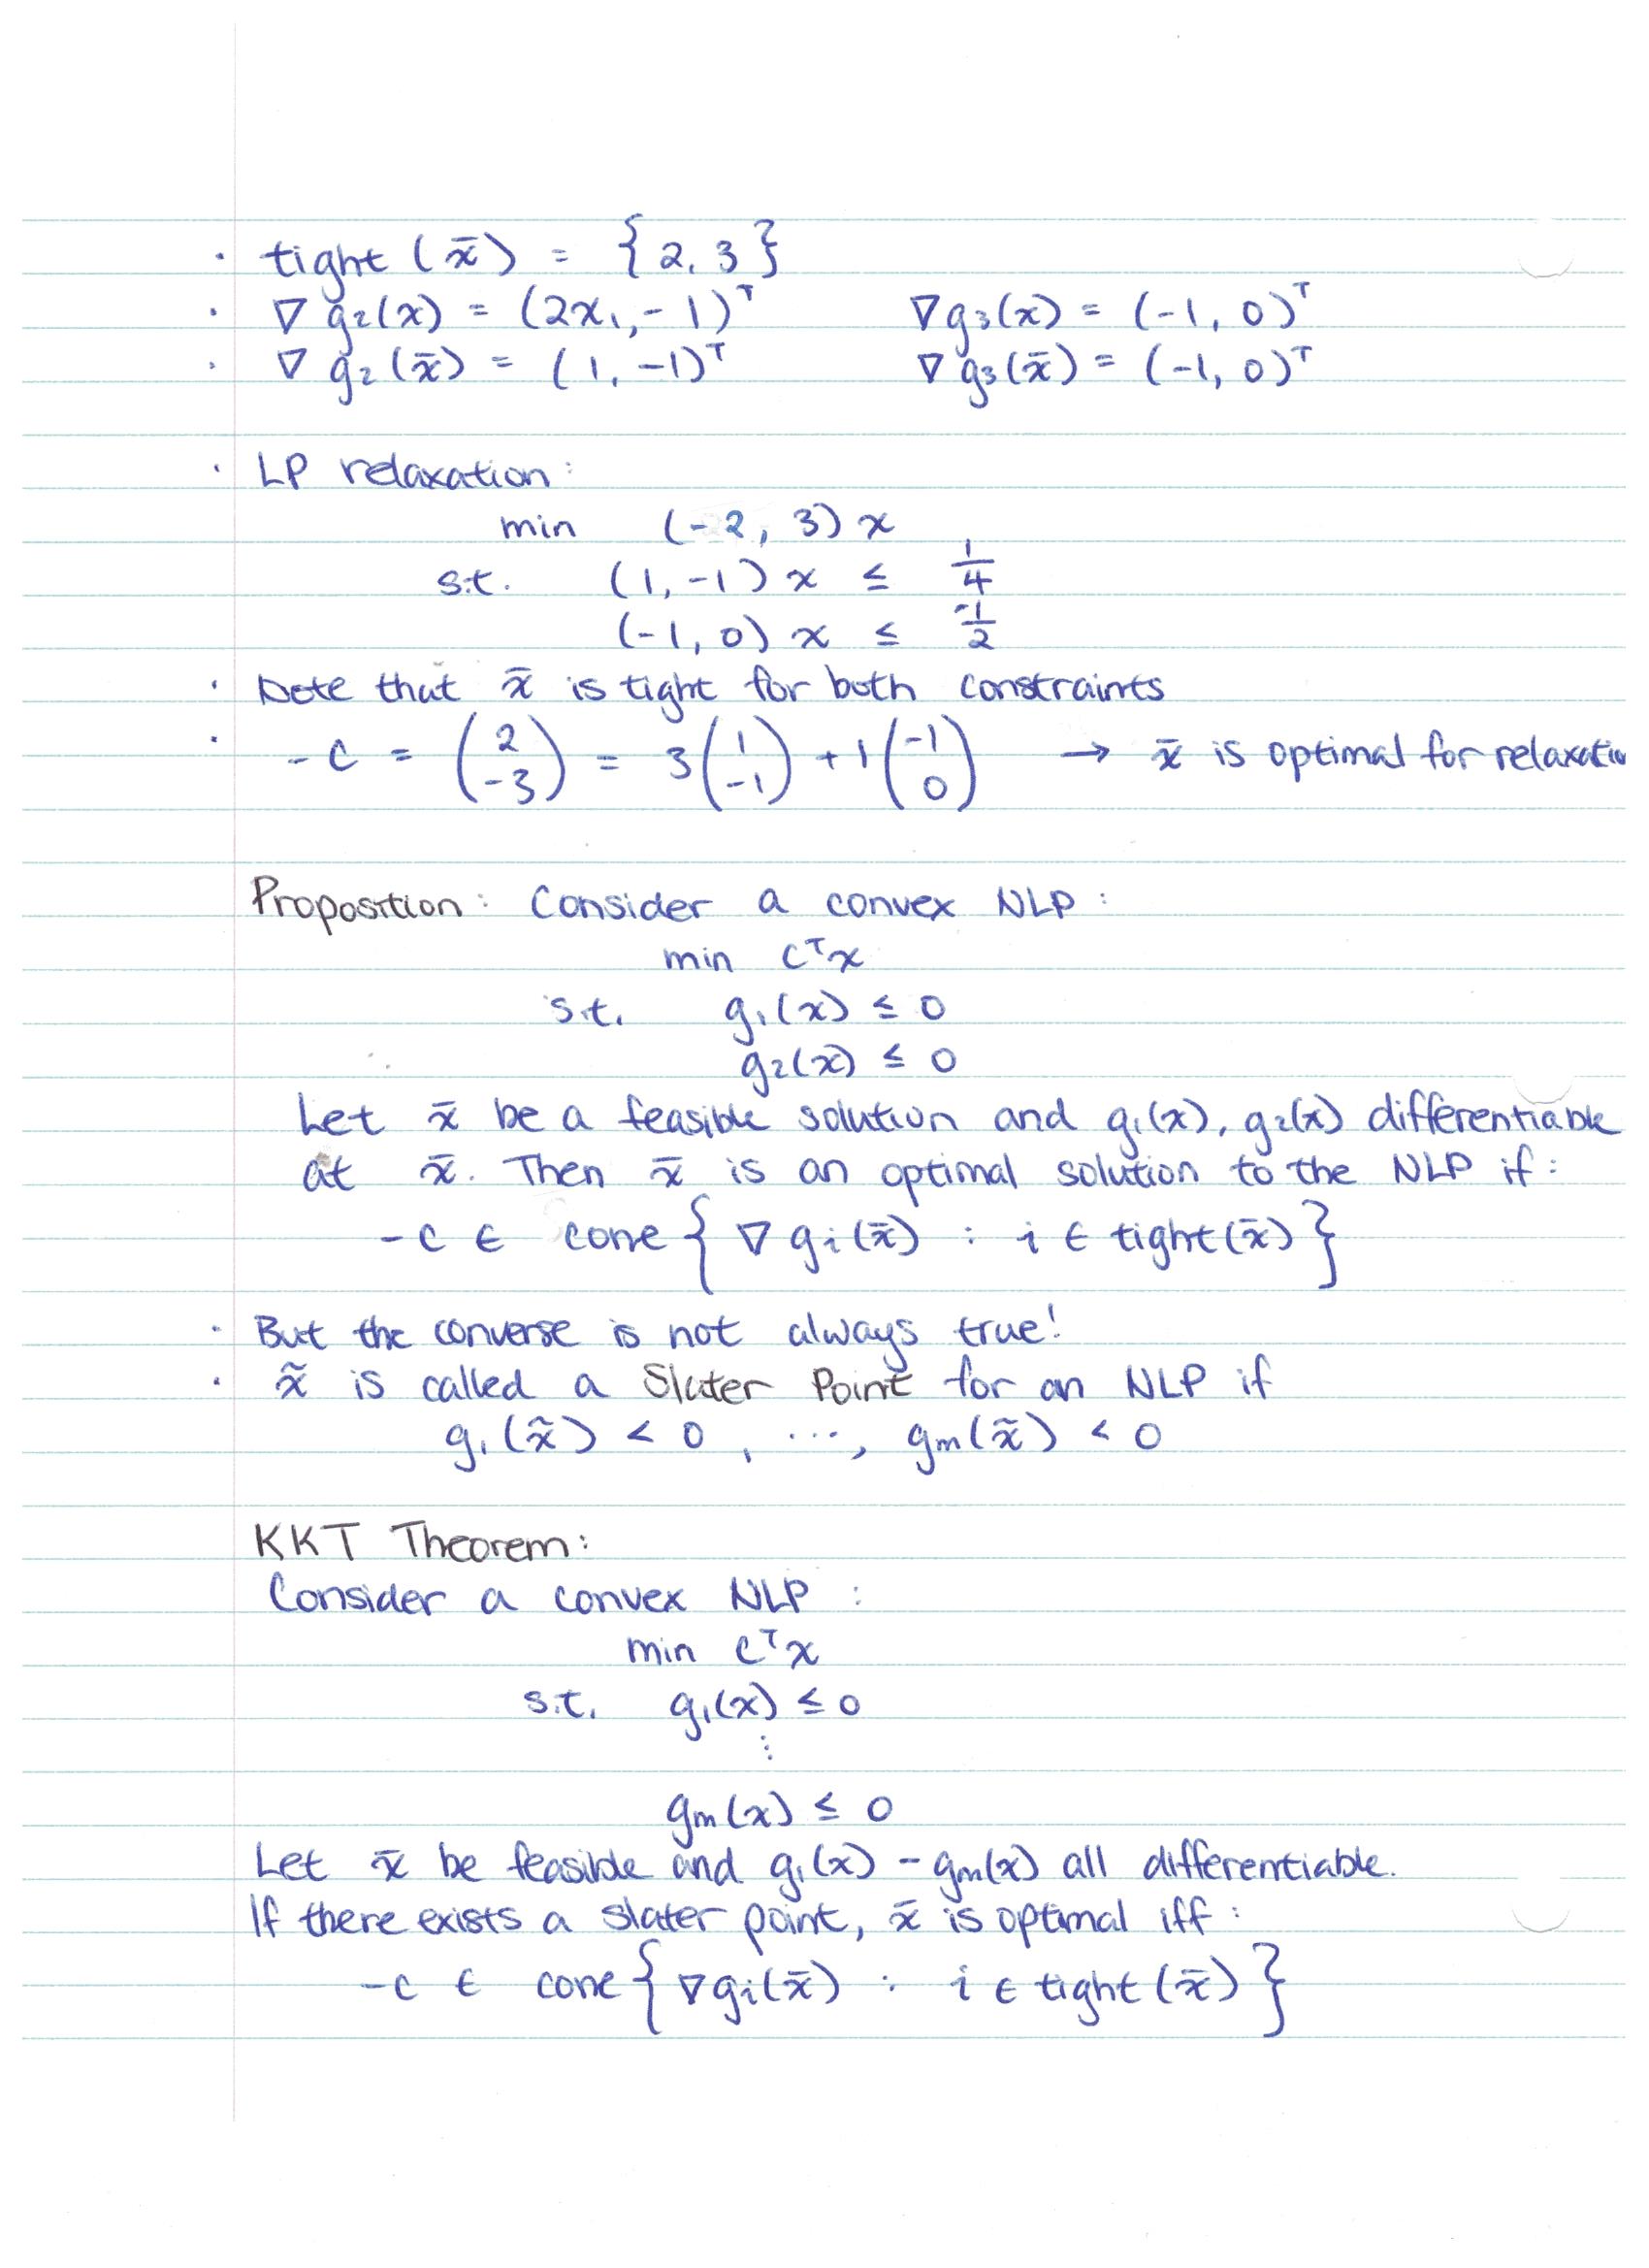 · tight (x̄) = {2, 3}
· ∇ g₂(x) = (2x₁, -1)ᵀ ∇g₃(x) = (-1, 0)ᵀ
· ∇ g₂(x̄) = (1, -1)ᵀ ∇ g₃(x̄) = (-1, 0)ᵀ
· LP relaxation:
min (-2, 3) x
s.t. (1, -1) x ≤ 1/4
(-1, 0) x ≤ -1/2
· Note that x̄ is tight for both constraints
· -c = (2 -3) = 3(1 -1) + 1(-1 0) → x̄ is optimal for relaxatio
Proposition: Consider a convex NLP:
min cᵀx
s.t. g₁(x) ≤ 0
g₂(x) ≤ 0
Let x̄ be a feasible solution and g₁(x), g₂(x) differentiable
at x̄. Then x̄ is an optimal solution to the NLP if:
-c ∈ cone { ∇ gᵢ(x̄) : i ∈ tight(x̄) }
· But the converse is not always true!
· x̃ is called a Slater Point for an NLP if
g₁(x̃) < 0, ..., gm(x̃) < 0
KKT Theorem:
Consider a convex NLP:
min cᵀx
s.t. g₁(x) ≤ 0
⋮
gm(x) ≤ 0
Let x̄ be feasible and g₁(x) - gm(x) all differentiable.
If there exists a slater point, x̄ is optimal iff:
-c ∈ cone { ∇gᵢ(x̄) : i ∈ tight(x̄) }